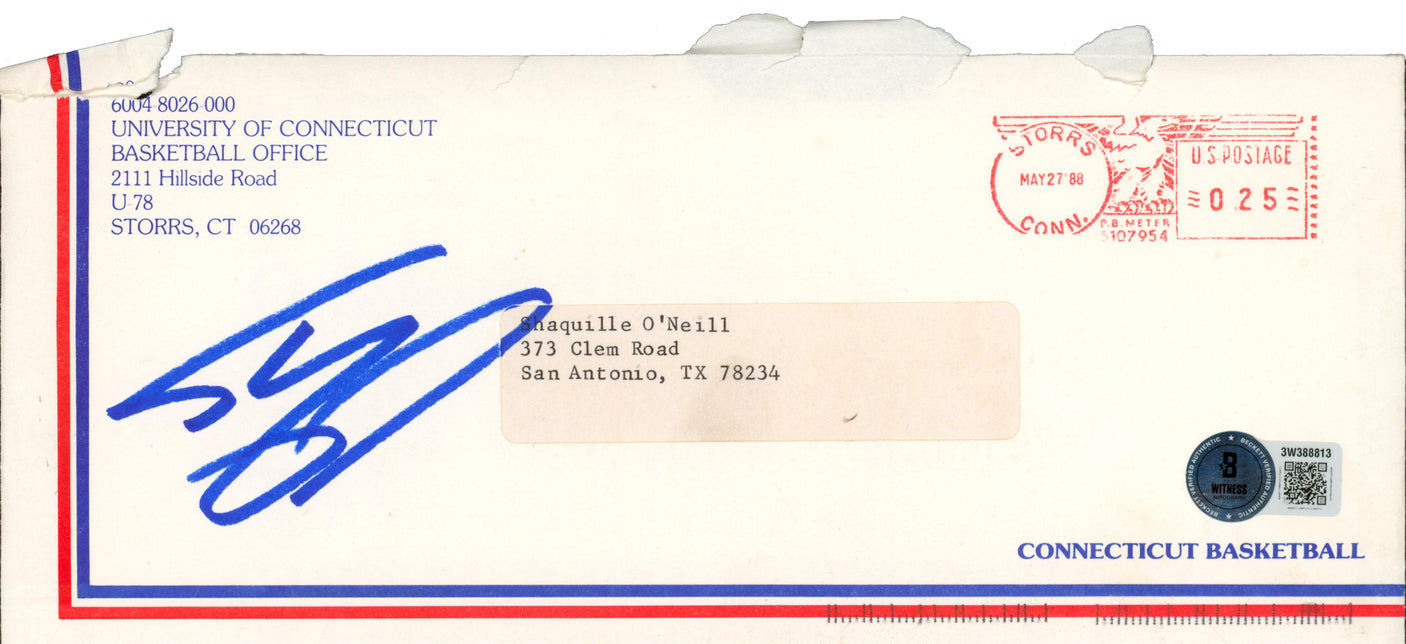 6004 8026 000
UNIVERSITY OF CONNECTICUT
BASKETBALL OFFICE
2111 Hillside Road
U-78
STORRS, CT 06268
STORRS
MAY27'88
CONN.
P.B. METER
5107954
U.S. POSTAGE
0 25
Shaquille O'Neill
373 Clem Road
San Antonio, TX 78234
BECKETT VERIFIED AUTHENTIC ★ BECKETT VERIFIED AUTHENTIC ★
B
WITNESS
AUTOGRAPH
3W388813
CONNECTICUT BASKETBALL